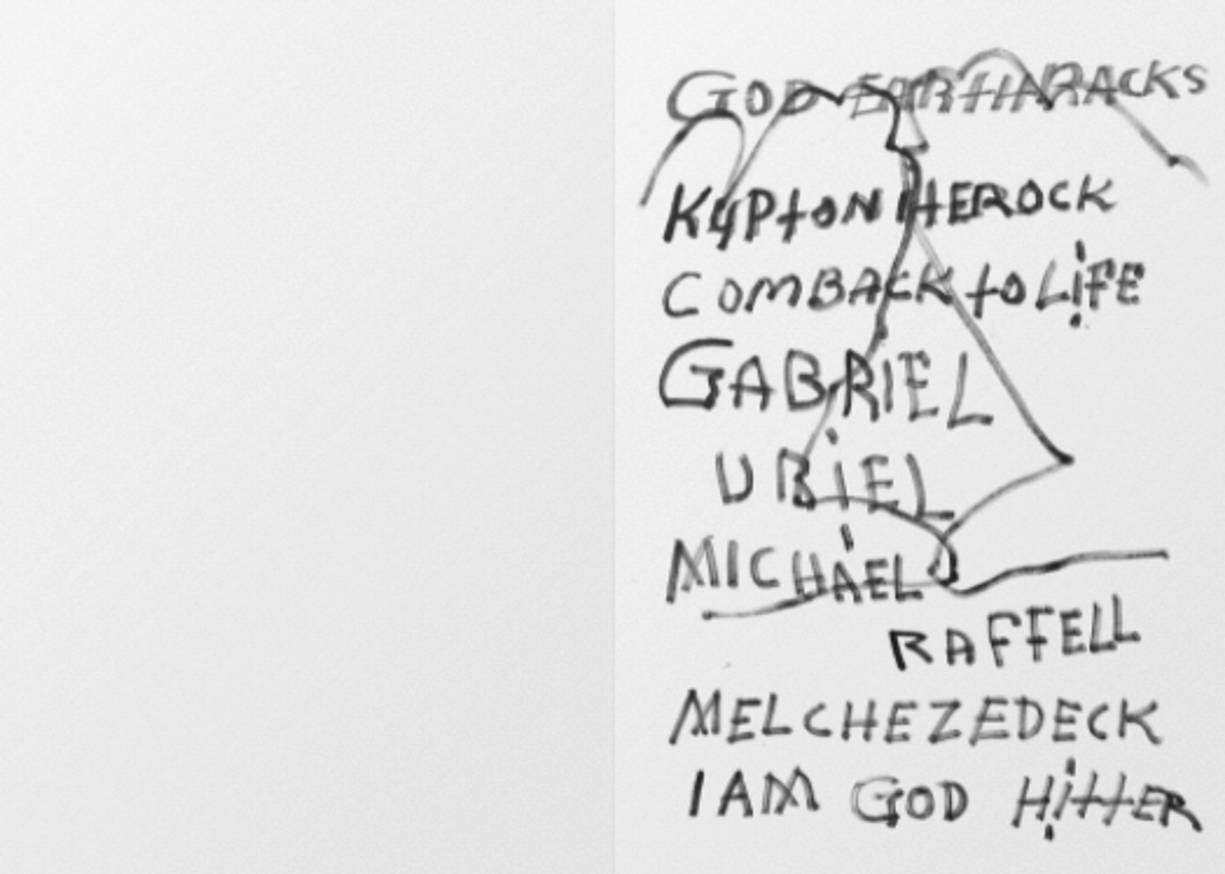 GOD EARTHARACKS
KYPTON HEROCK
COMBACK to LiFE
GABRIEL
URiEL
MICHAEL
RAFFELL
MELCHEZEDECK
I AM GOD HittER